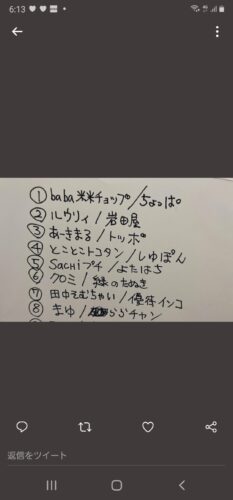 6:13
① baba米米チョップ/ちょっぱ
② ルウリィ/岩田屋
③ あーきまる/トッポ
④ とことこトコタン/しゅぽん
⑤ SACHIプチ/よたはち
⑥ クロミ/緑のたぬき
⑦ 田中そむちゃい/優待インコ
⑧ まゆ/ららチャン
返信をツイート